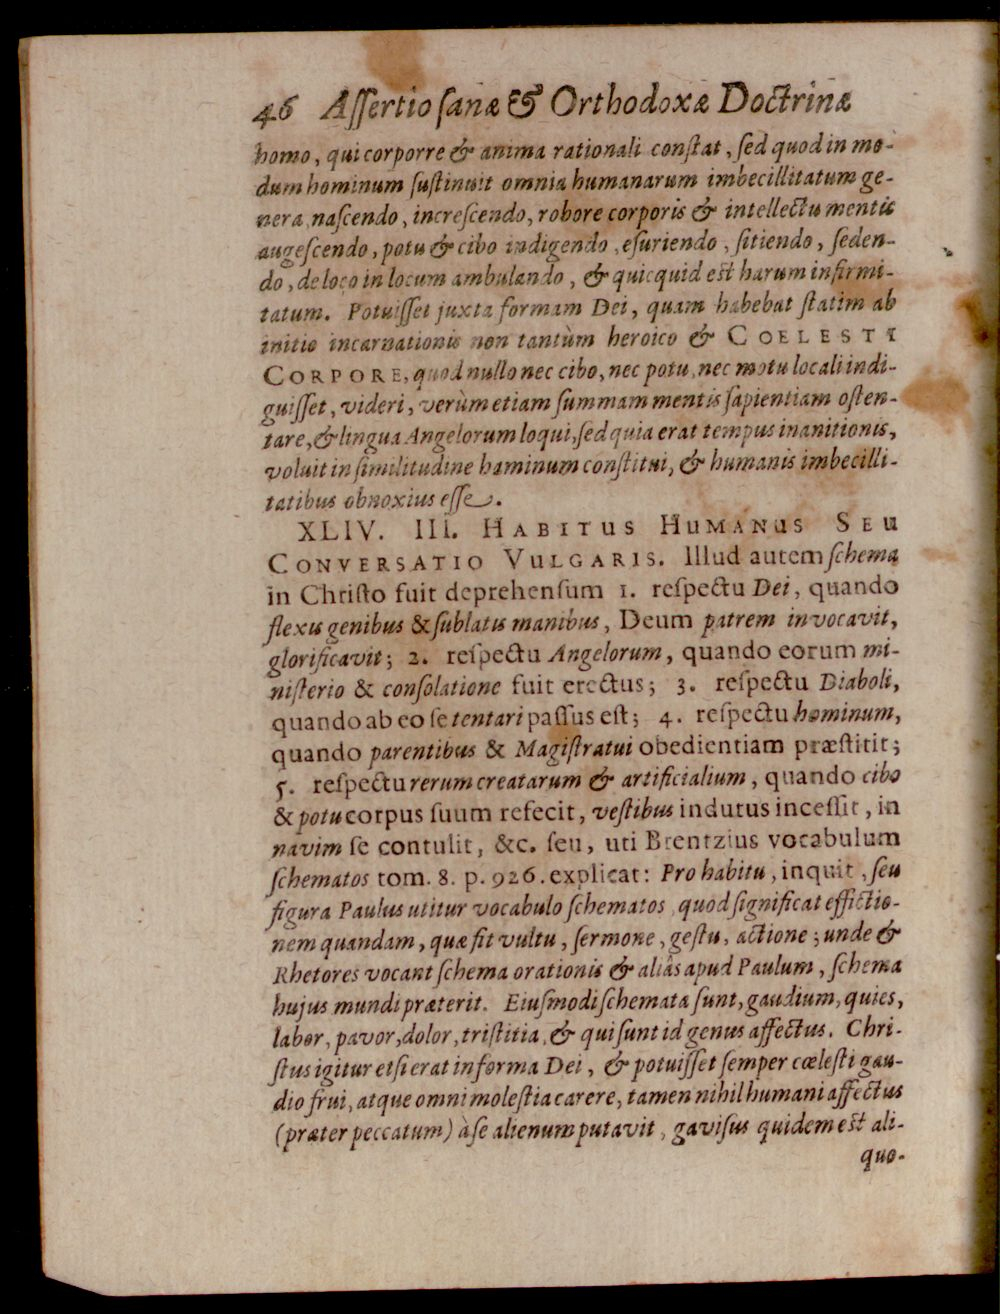 46 Aſſertio ſanæ & Orthodoxæ Doctrinæ
homo, qui corporre & anima rationali conſtat, ſed quod in mo-
dum hominum ſuſtinuit omnia humanarum imbecillitatum ge-
nera, naſcendo, increſcendo, robore corporis & intellectu mentis
augeſcendo, potu & cibo indigendo, eſuriendo, ſitiendo, ſeden-
do, de loco in locum ambulando, & quicquid est harum infirmi-
tatum. Potuiſſet juxta formam Dei, quam habebat ſtatim ab
initio incarnationis non tantùm heroico & COELESTI
CORPORE, quod nullo nec cibo, nec potu, nec motu locali indi-
guiſſet, videri, verùm etiam ſummam mentis ſapientiam oſten-
tare, & lingua Angelorum loqui, ſed quia erat tempus inanitionis,
voluit in ſimilitudine haminum conſtitui, & humanis imbecilli-
tatibus obnoxius eſſe.
XLIV. III. HABITUS HUMANUS SEU
CONVERSATIO VULGARIS. Illud autem ſchema
in Chriſto fuit deprehenſum 1. reſpectu Dei, quando
flexis genibus & ſublatis manibus, Deum patrem invocavit,
glorificavit; 2. reſpectu Angelorum, quando eorum mi-
niſterio & conſolatione fuit erectus; 3. reſpectu Diaboli,
quando ab eo ſe tentari paſſus eſt; 4. reſpectu hominum,
quando parentibus & Magiſtratui obedientiam præſtitit;
5. reſpectu rerum creatarum & artificialium, quando cibo
& potu corpus ſuum refecit, veſtibus indutus inceſſit, in
navim ſe contulit, &c. ſeu, uti Brentzius vocabulum
ſchematos tom. 8. p. 926. explicat: Pro habitu, inquit, ſeu
figura Paulus utitur vocabulo ſchematos, quod ſignificat effictio-
nem quandam, quæ fit vultu, ſermone, geſtu, actione; unde &
Rhetores vocant ſchema orationis & aliâs apud Paulum, ſchema
hujus mundi præterit. Eiuſmodi ſchemata ſunt, gaudium, quies,
labor, pavor, dolor, triſtitia, & qui ſunt id genus affectus. Chri-
ſtus igitur etſi erat in forma Dei, & potuiſſet ſemper cœleſti gau-
dio frui, atque omni moleſtia carere, tamen nihil humani affectus
(præter peccatum) à ſe alienum putavit, gaviſus quidem est ali-
quo-